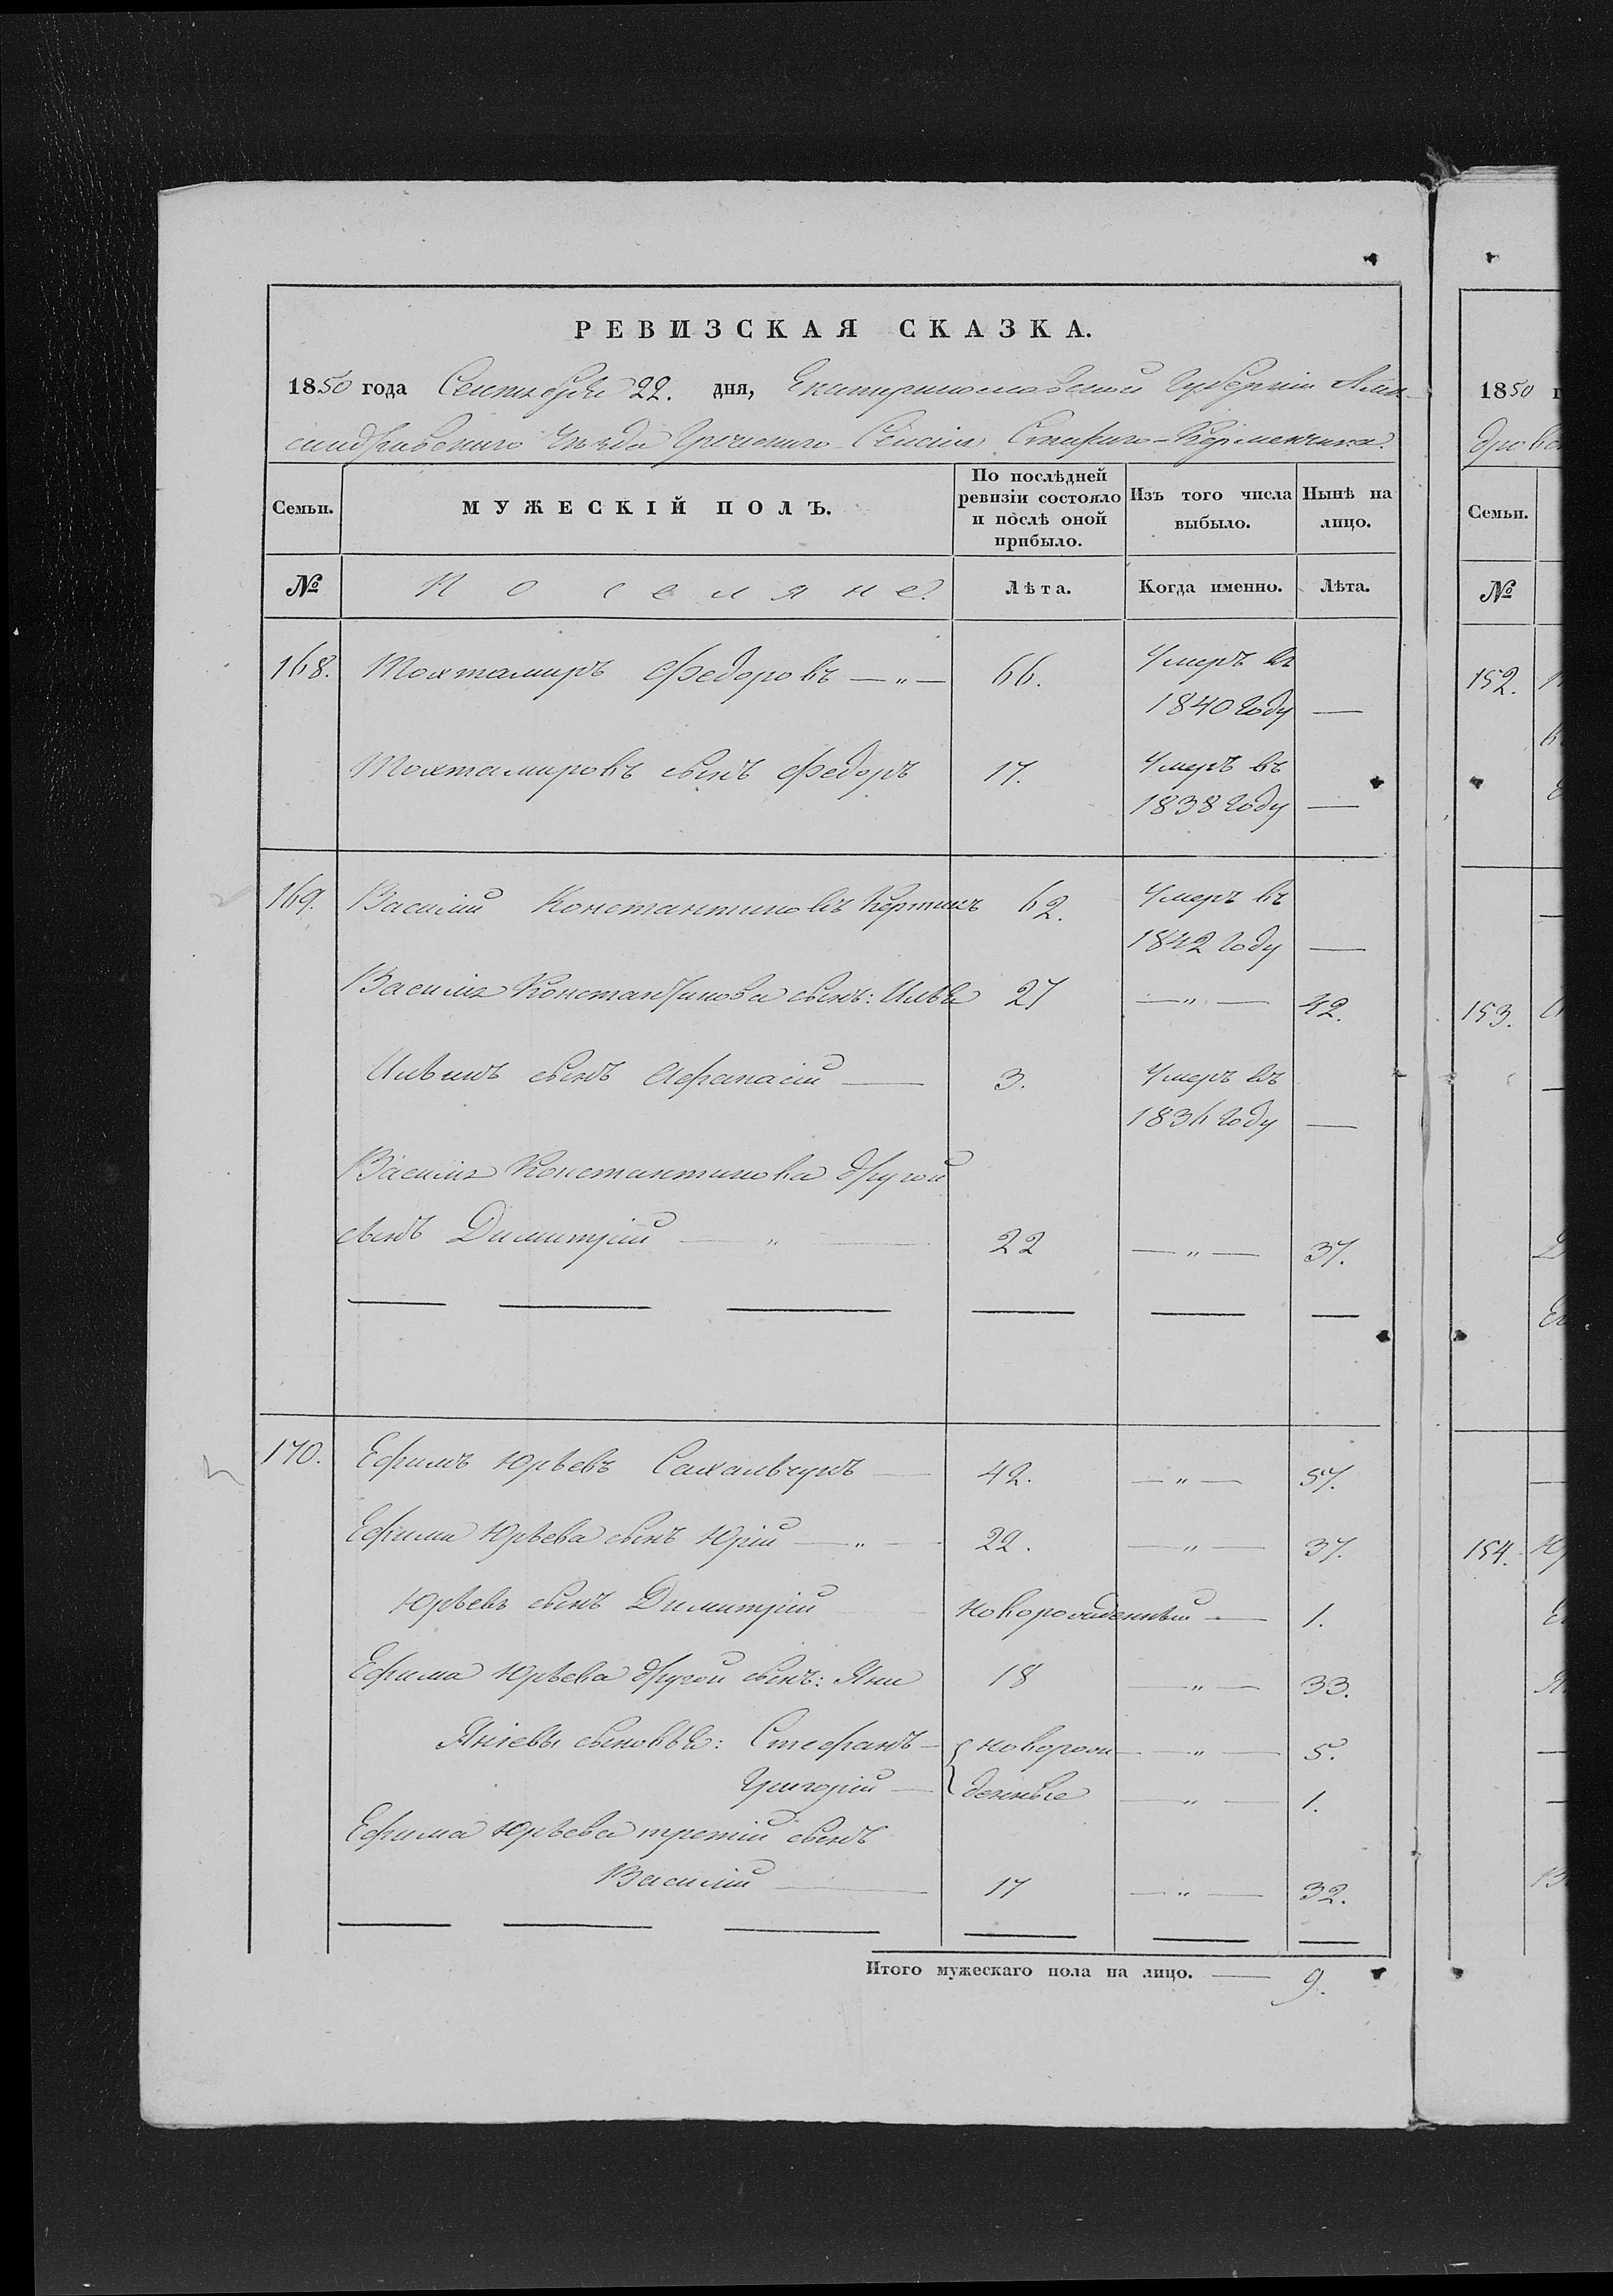 РЕВИЗСКАЯ СКАЗКА.
1850 года Сентября 22. дня, Екатеринославской Губерніи Алек-
сандровскаго Уѣзда Греческаго Селенія Стараго-Керменчика.
Семьи. МУЖЕСКІЙ ПОЛЪ. По послѣдней ревизіи состояло и послѣ оной прибыло. Изъ того числа выбыло. Нынѣ на лицо.
№ Поселяне. Лѣта. Когда именно. Лѣта.
168. Тохтамиръ Федоровъ — „ — 66. Умеръ въ
1840 году —
Тохтамировъ сынъ Федоръ 17. Умеръ въ
1838 году —
169. Василій Константиновъ 62. Умеръ въ
1842 году —
Василія Константинова сынъ: Илья 27 — „ — 42.
Ильинъ сынъ Афанасій — 3. Умеръ въ
1836 году —
Василія Константинова другой
сынъ Димитрій — „ — 22 — „ — 37.
170. Ефимъ Юрьевъ — 42. — „ — 57.
Ефима Юрьева сынъ Юрій — „ — 22. — „ — 37.
Юрьевъ сынъ Димитрій новорожденный — 1.
Ефима Юрьева другой сынъ: Яни 18 — „ — 33.
Яніевы сыновья: Стефанъ — новорож- — „ — 5.
Григорій — денные — „ — 1.
Ефима Юрьева третій сынъ
Василій — 17 — „ — 32.
Итого мужескаго пола на лицо. — 9.
1850
Семьи.
№
152.
153.
154.